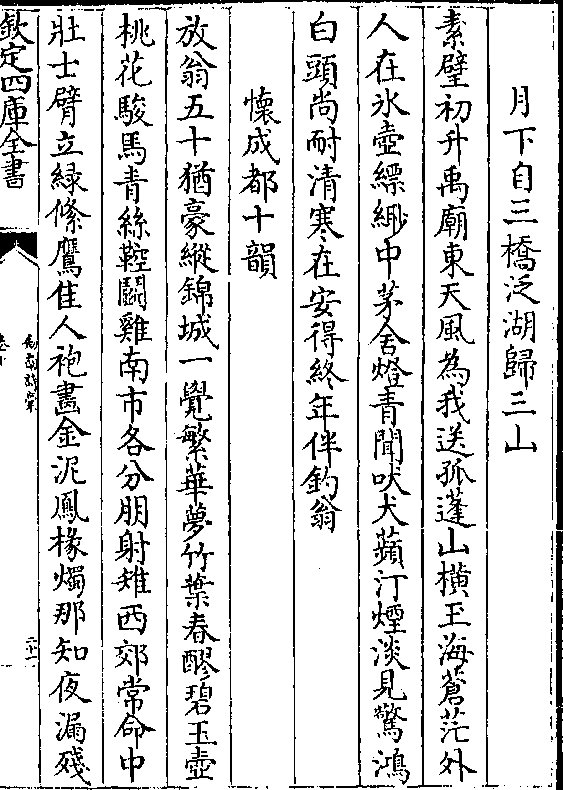 月下自三橋泛湖歸三山
素璧初升禹廟東天風為我送孤蓬山横玉海蒼茫外
人在氷壺縹緲中茅舍燈青聞吠犬蘋汀煙淡見驚鴻
白頭尚耐清寒在安得終年伴釣翁
懐成都十韻
放翁五十猶豪縱錦城一覺繁華夢竹葉春醪碧玉壺
桃花駿馬青絲鞚鬬雞南市各分朋射雉西郊常命中
壯士臂立緑絛鷹佳人袍畫金泥鳳椽燭那知夜漏殘
欽定四庫全書
劍南詩稾